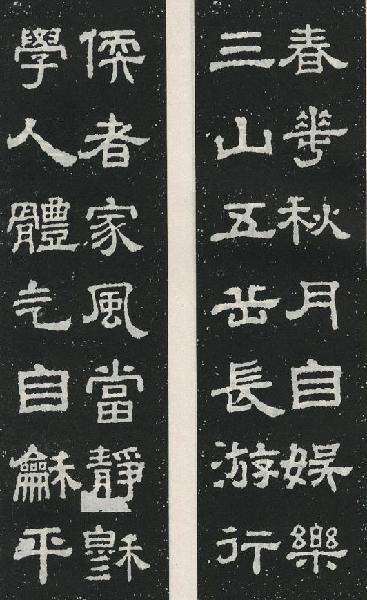 春華秋月自娛樂
三山五岳長游行
儒者家風當靜穆
學人體气自龢平